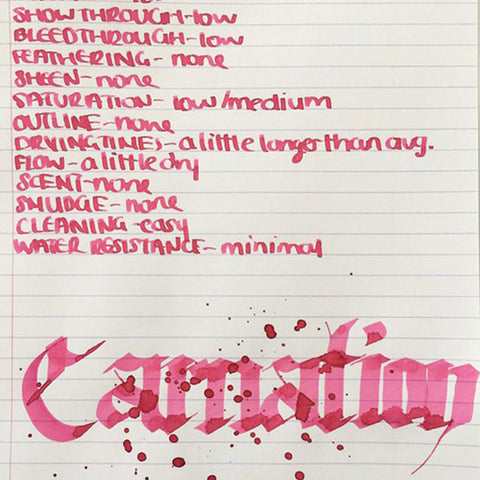 SHOWTHROUGH-low
BLEEDTHROUGH-low
FEATHERING- none
SHEEN-none
SATURATION- low/medium
OUTLINE-none
DRYINGTIMES-a little longer than avg.
FLOW-a little dry
SCENT-none
SMUDGE-none
CLEANING-easy
WATER RESISTANCE- minimal
Carnation